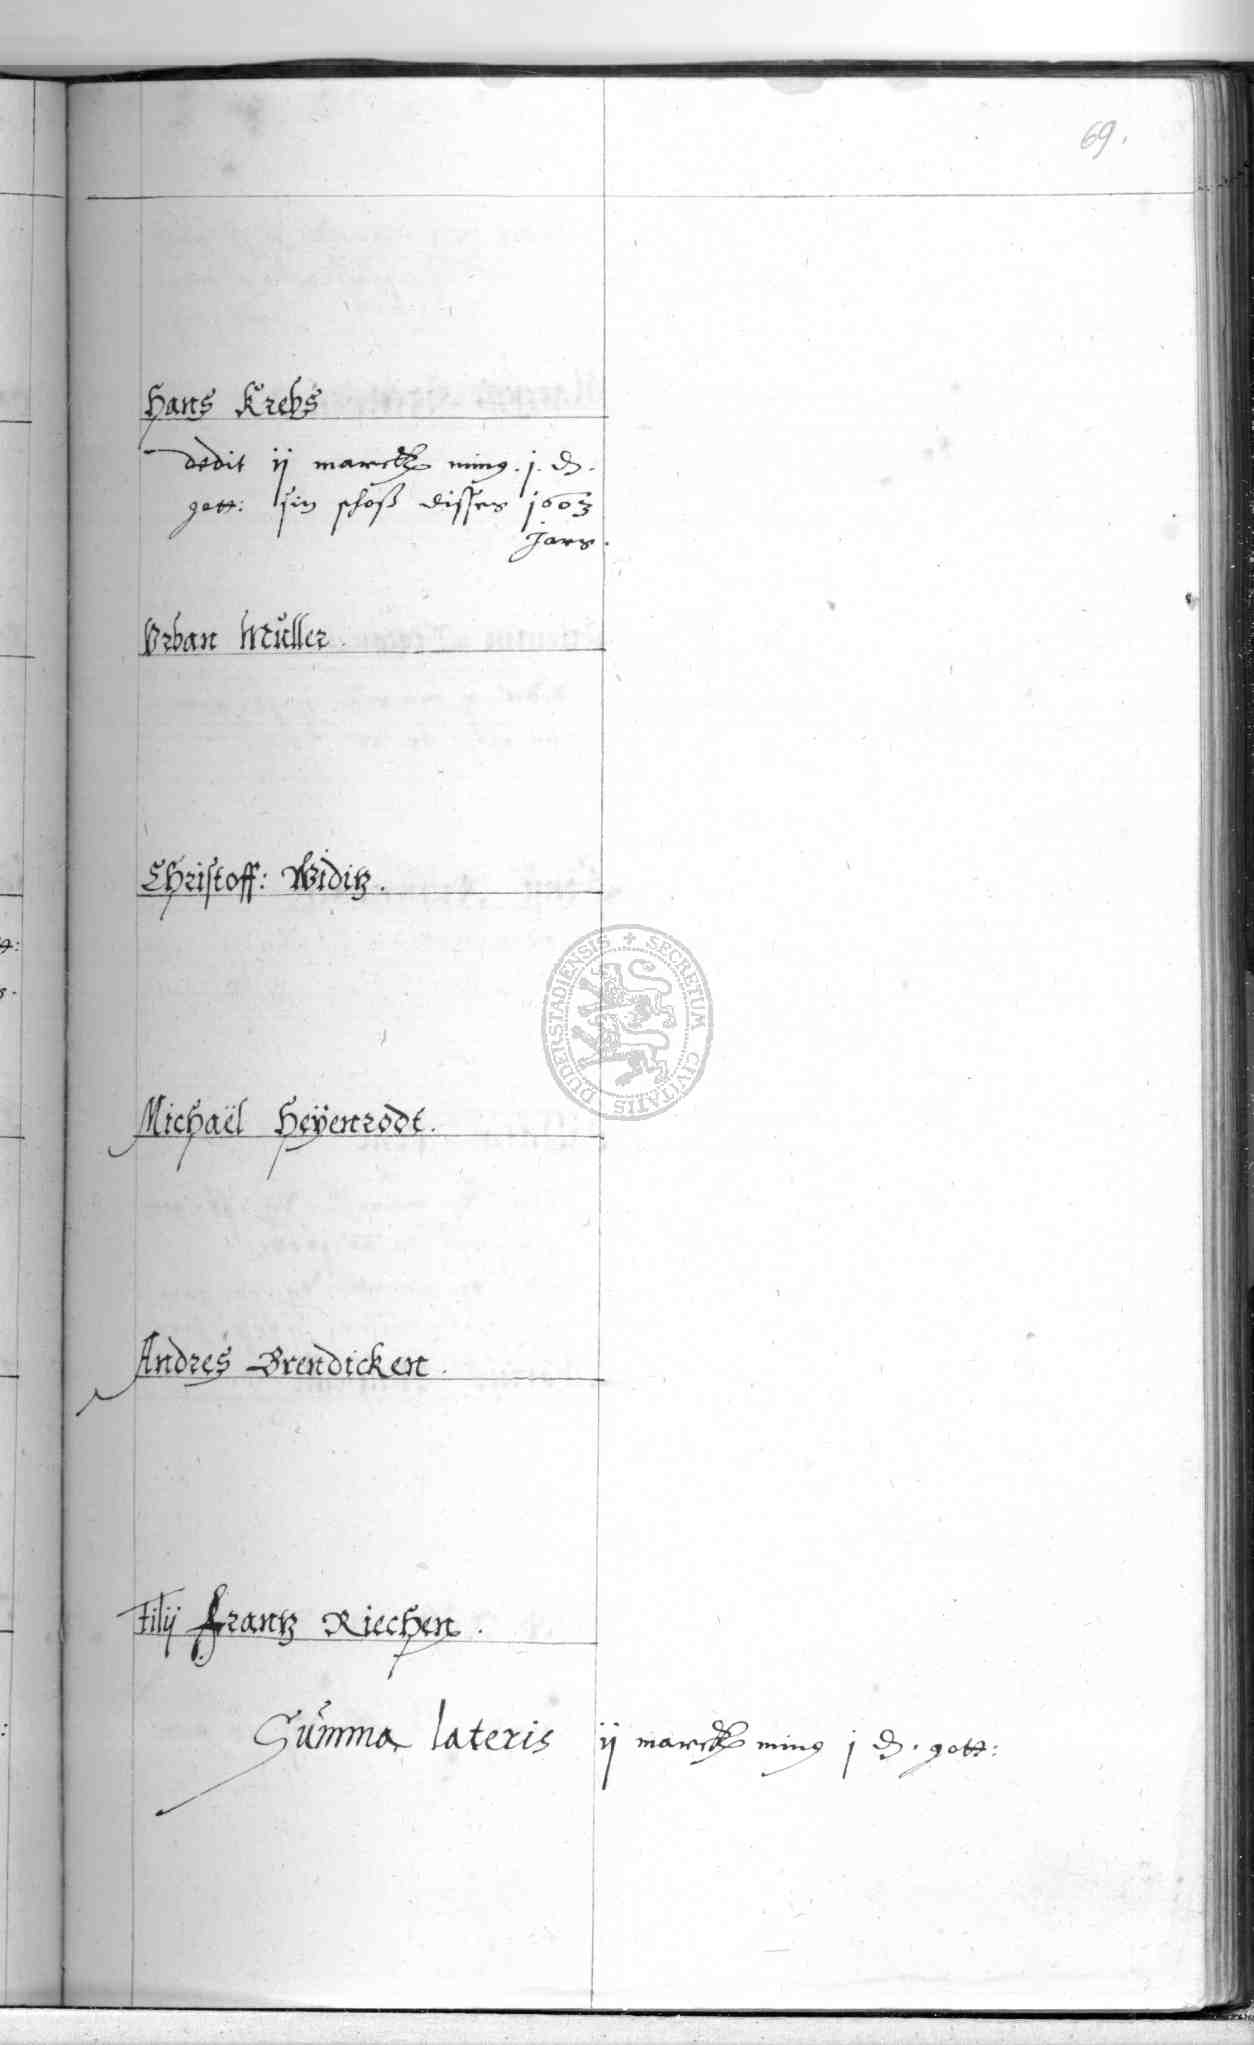 69.
Hans Krebs
dedit ij marck min9. j. d.
gott: sin schoß disses 1603
Jars.
Vrban Müller.
Christoff: Widitz.
Michaël Heÿenrodt.
Andres Brendicken.
Filij Frantz Riechen.
Summa lateris ij marck min9 j d. gott:
SECRETUM CIVITATIS DUDERSTADIENSIS